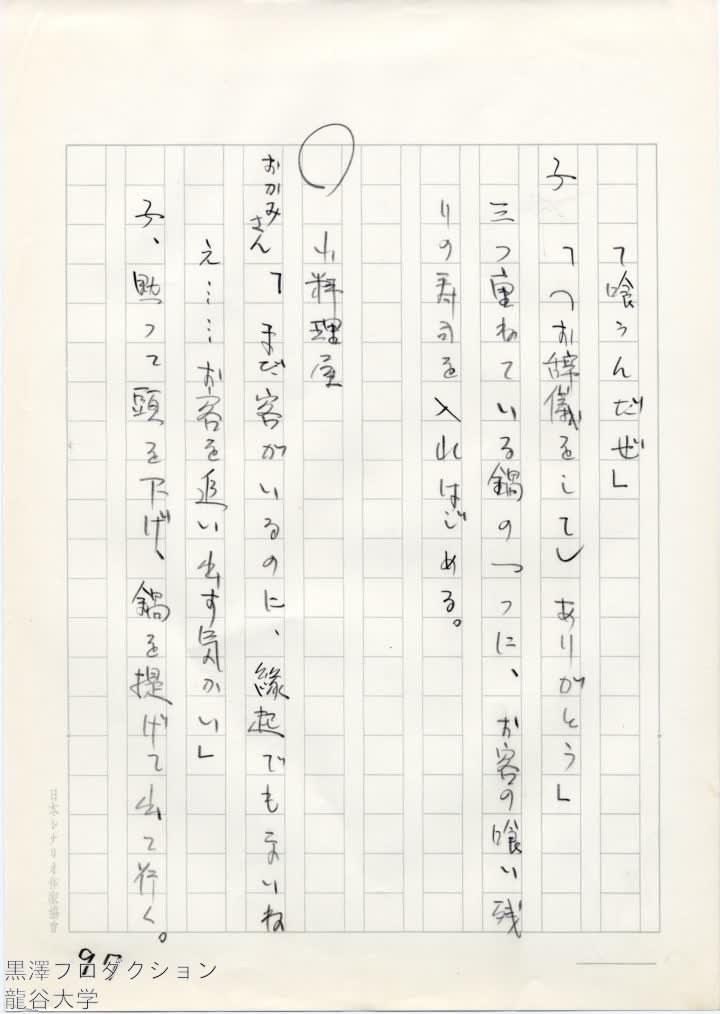 「喰うんだぜ」
子 「(お辞儀をして)ありがとう」
三つ重ねている鍋の一つに、お客の喰い残
りの寿司を入れはじめる。
○ 小料理屋
おかみさん「まだ客がいるのに、縁起でもないね
え……お客を追い出す気かい」
子、黙って頭を下げ、鍋を提げて出て行く。
日本シナリオ作家協會
黒澤プロダクション
龍谷大学